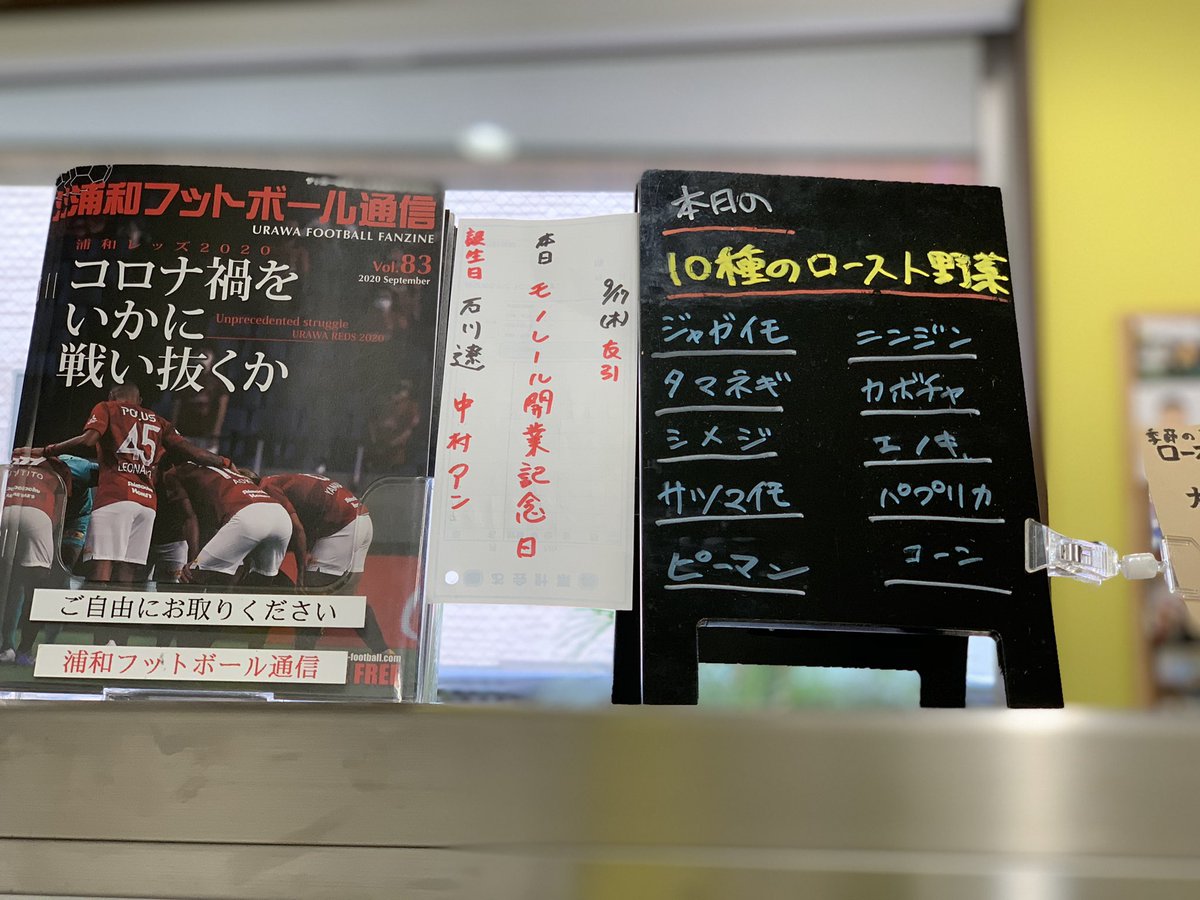 浦和フットボール通信
URAWA FOOTBALL FANZINE
浦和レッズ2020
Vol.83
2020 September
コロナ禍を
いかに
戦い抜くか
Unprecedented struggle
URAWA REDS 2020
POLUS
45
LEONARDO
ご自由にお取りください
浦和フットボール通信
-football.com
FREE
9/17(木) 友引
本日 モノレール開業記念日
誕生日 石川遼 中村アン
本日の
10種のロースト野菜
ジャガイモ
ニンジン
タマネギ
カボチャ
シメジ
エノキ
サツマイモ
パプリカ
ピーマン
コーン
季節の
ロース